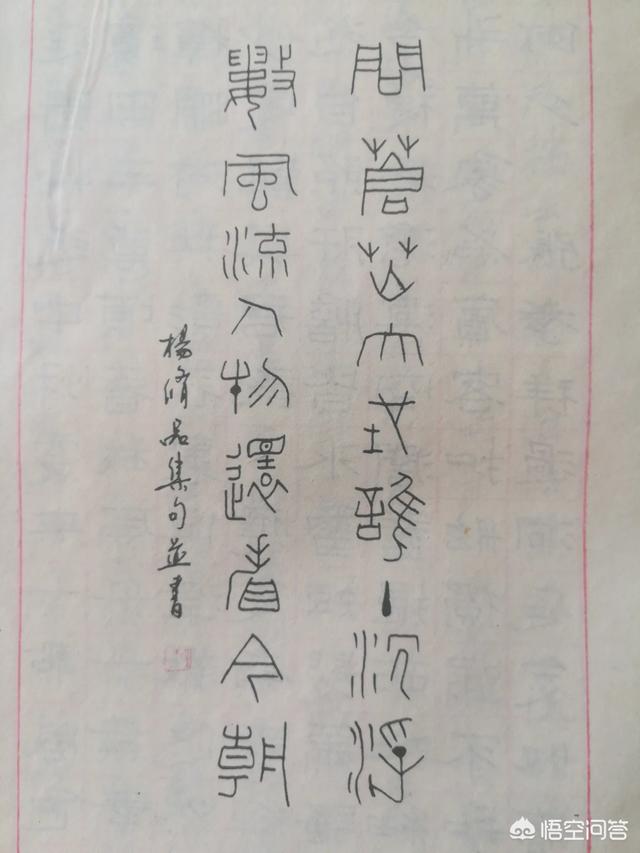 問蒼芒大地誰主沉浮
數風流人物還看今朝
楊脩品集句並書
悟空问答